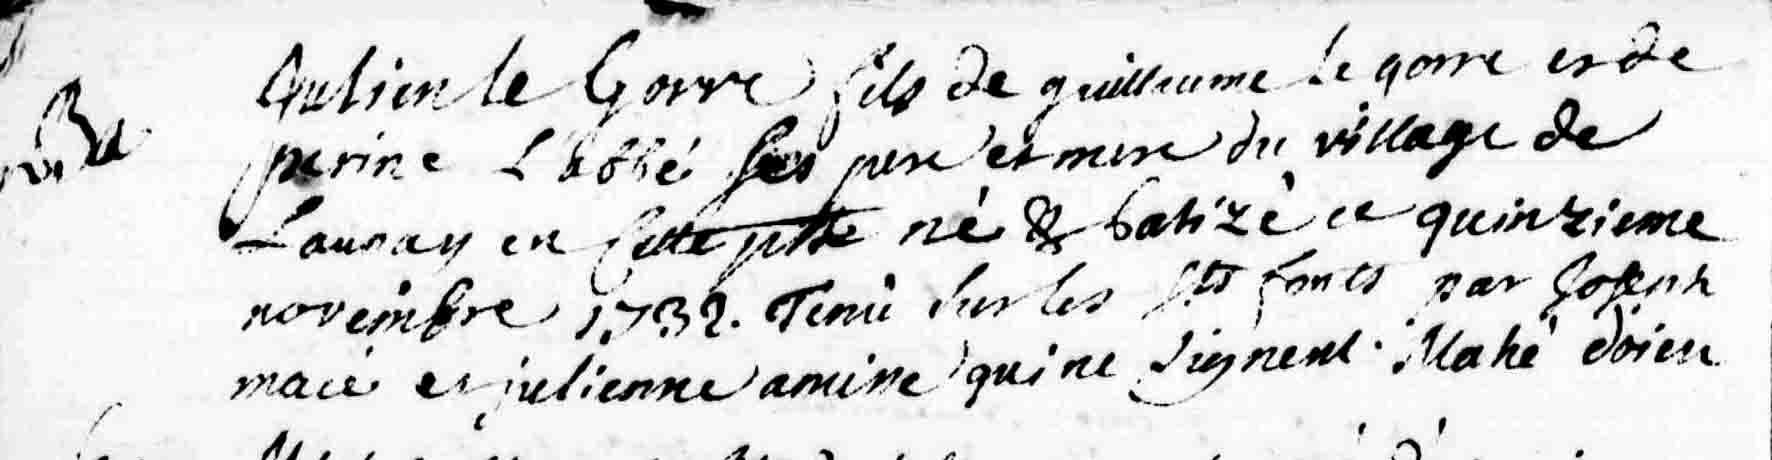 Ba
Julien le Gorre fils de guilleume le gorre et de
perine Labbé ses pere et mere du village de
Launay en cette psse né & batizé ce quinzieme
novembre 1732. Tenu sur les sts fonts par Joseph
macé et julienne amine qui ne signent. Mahé doien